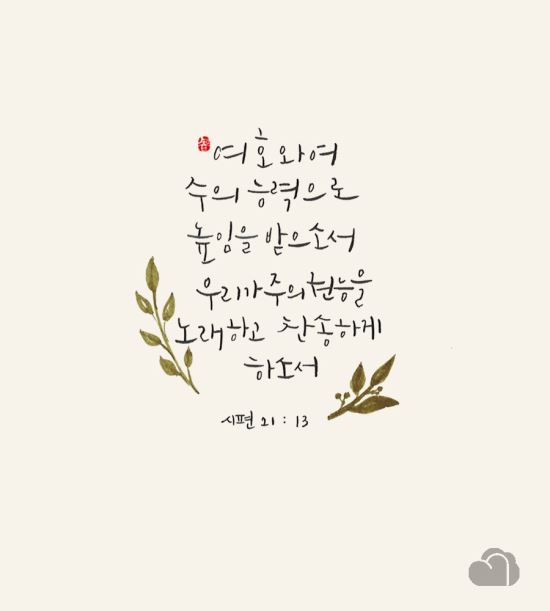 여호와여
주의 능력으로
높임을 받으소서
우리가 주의 권능을
노래하고 찬송하게
하소서
시편 21 : 13